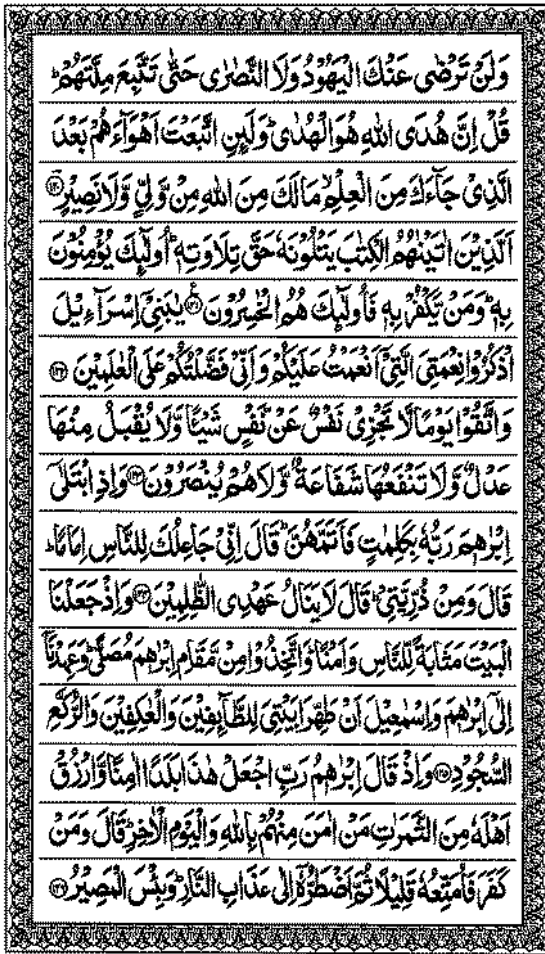 وَلَنْ تَرْضٰى عَنْكَ الْيَهُوْدُ وَلَا النَّصٰرٰى حَتّٰى تَتَّبِعَ مِلَّتَهُمْ ؕ
قُلْ اِنَّ هُدَى اللّٰهِ هُوَ الْهُدٰى ؕ وَلَىِٕنِ اتَّبَعْتَ اَهْوَآءَهُمْ بَعْدَ
الَّذِىْ جَآءَكَ مِنَ الْعِلْمِ ۙ مَا لَكَ مِنَ اللّٰهِ مِنْ وَّلِىٍّ وَّلَا نَصِيْرٍ ﴿۱۲۰﴾
اَلَّذِيْنَ اٰتَيْنٰهُمُ الْكِتٰبَ يَتْلُوْنَهٗ حَقَّ تِلَاوَتِهٖ ؕ اُولٰٓىِٕكَ يُؤْمِنُوْنَ
بِهٖ ؕ وَمَنْ يَّكْفُرْ بِهٖ فَاُولٰٓىِٕكَ هُمُ الْخٰسِرُوْنَ ﴿۱۲۱﴾ ع يٰبَنِىْٓ اِسْرَآءِيْلَ
اذْكُرُوْا نِعْمَتِىَ الَّتِىْٓ اَنْعَمْتُ عَلَيْكُمْ وَاَنِّىْ فَضَّلْتُكُمْ عَلَى الْعٰلَمِيْنَ ﴿۱۲۲﴾
وَاتَّقُوْا يَوْمًا لَّا تَجْزِىْ نَفْسٌ عَنْ نَّفْسٍ شَيْـًٔا وَّلَا يُقْبَلُ مِنْهَا
عَدْلٌ وَّلَا تَنْفَعُهَا شَفَاعَةٌ وَّلَا هُمْ يُنْصَرُوْنَ ﴿۱۲۳﴾ وَاِذِ ابْتَلٰٓى
اِبْرٰهٖمَ رَبُّهٗ بِكَلِمٰتٍ فَاَتَمَّهُنَّ ؕ قَالَ اِنِّىْ جَاعِلُكَ لِلنَّاسِ اِمَامًا ؕ
قَالَ وَمِنْ ذُرِّيَّتِىْ ؕ قَالَ لَا يَنَالُ عَهْدِى الظّٰلِمِيْنَ ﴿۱۲۴﴾ وَاِذْ جَعَلْنَا
الْبَيْتَ مَثَابَةً لِّلنَّاسِ وَاَمْنًا ؕ وَاتَّخِذُوْا مِنْ مَّقَامِ اِبْرٰهٖمَ مُصَلًّى ؕ وَعَهِدْنَآ
اِلٰٓى اِبْرٰهٖمَ وَاِسْمٰعِيْلَ اَنْ طَهِّرَا بَيْتِىَ لِلطَّآىِٕفِيْنَ وَالْعٰكِفِيْنَ وَالرُّكَّعِ
السُّجُوْدِ ﴿۱۲۵﴾ وَاِذْ قَالَ اِبْرٰهٖمُ رَبِّ اجْعَلْ هٰذَا بَلَدًا اٰمِنًا وَّارْزُقْ
اَهْلَهٗ مِنَ الثَّمَرٰتِ مَنْ اٰمَنَ مِنْهُمْ بِاللّٰهِ وَالْيَوْمِ الْاٰخِرِ ؕ قَالَ وَمَنْ
كَفَرَ فَاُمَتِّعُهٗ قَلِيْلًا ثُمَّ اَضْطَرُّهٗٓ اِلٰى عَذَابِ النَّارِ ؕ وَبِئْسَ الْمَصِيْرُ ﴿۱۲۶﴾